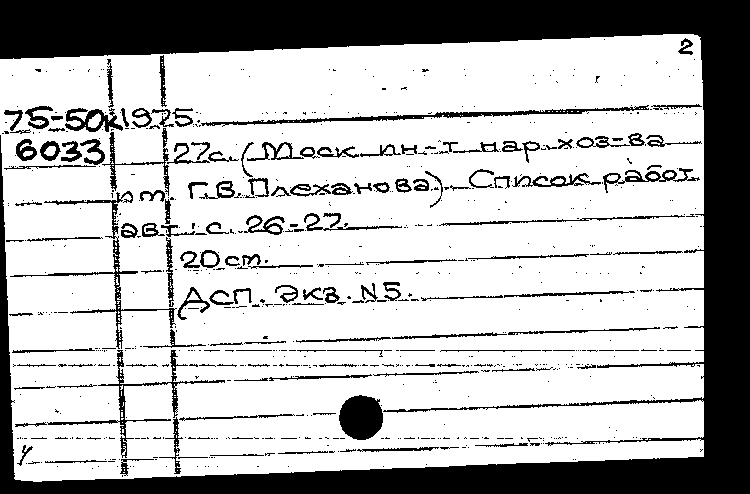 2
75-50к 1975.
6033 27с. (Моск. ин-т нар. хоз-ва
им. Г.В. Плеханова). Список работ
авт.: с. 26-27.
20 см.
ДСП. Экз. N5.